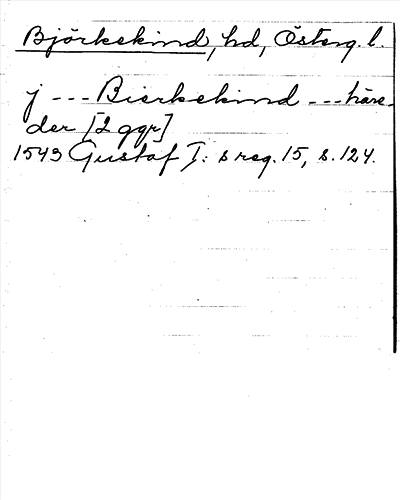 Björkekind, hd, Österg. l.
j --- Bierkekind --- häre-
der [2 ggr]
1543 Gustaf I: s reg. 15, s. 124.